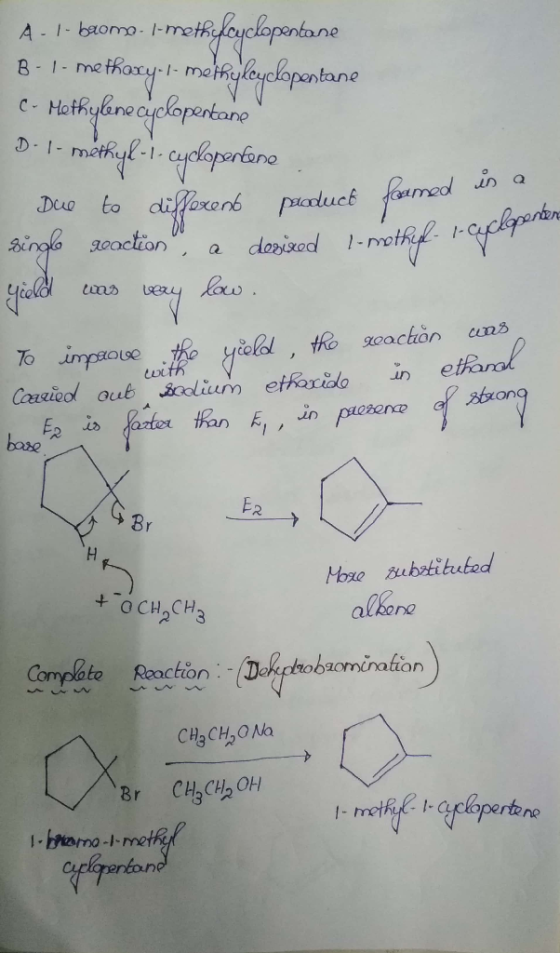 A - 1- bromo- 1-methylcyclopentane
B - 1 - methoxy-1- methylcyclopentane
C - Methylenecyclopentane
D- 1- methyl-1- cyclopentene
Due to different product formed in a
single reaction, a desired 1-methyl- 1-cyclopenten
yield was very low.
To improve the yield, the reaction was
Carried out with sodium ethoxide in ethanol
E2 is faster than E1, in presence of strong
base.
Br
H
E2
+ -OCH2CH3
More substituted
alkene
Complete Reaction:-(Dehydrobromination)
CH3CH2ONa
CH3CH2OH
Br
1-methyl-1-cyclopentene
1-bromo-1-methyl
cyclopentane